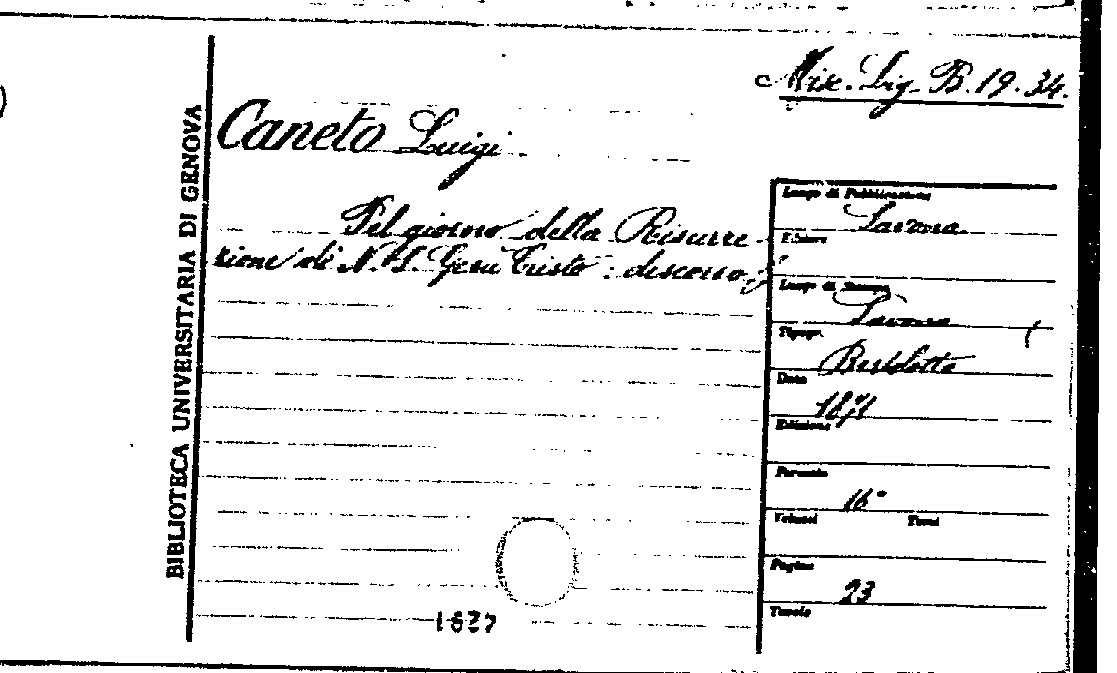 Misc. Lig. B. 19. 34.
BIBLIOTECA UNIVERSITARIA DI GENOVA
Caneto Luigi
Pel giorno della Risurre
zione di N. S. Gesu Cristo: discorso
Luogo di Pubblicazione
Savona
Editore
Luogo di Stampa
Savona
Tipogr.
Bertolotto
Data
1871
Edizione
Formato
16°
Volumi Tomi
Pagine
23
Tavole
1837